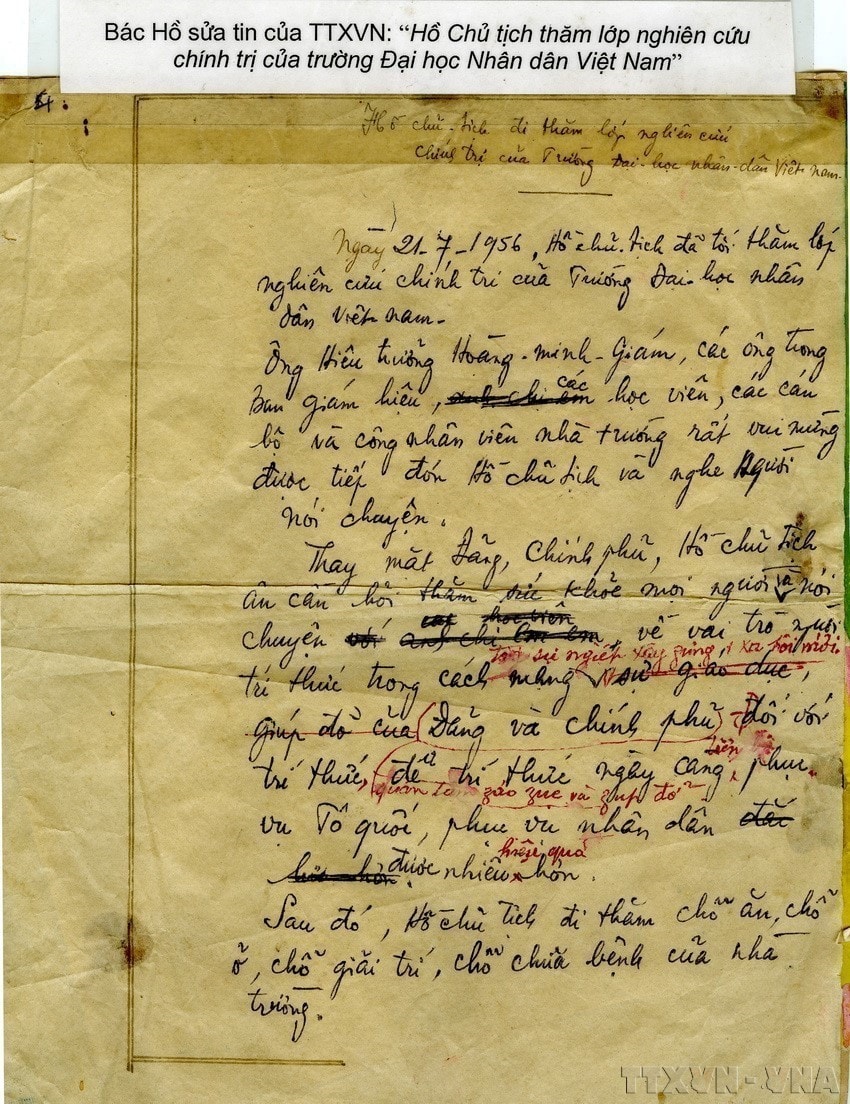 Bác Hồ sửa tin của TTXVN: “Hồ Chủ tịch thăm lớp nghiên cứu
chính trị của trường Đại học Nhân dân Việt Nam”
Hồ chủ-tịch đi thăm lớp nghiên cứu
chính trị của Trường Đại-học nhân-dân Việt-nam-
Ngày 21-7-1956, Hồ chủ-tịch đã tới thăm lớp
nghiên cứu chính trị của Trường Đại-học nhân
dân Việt-nam-
Ông Hiệu trưởng Hoàng-minh-Giám, các ông trong
ban giám hiệu, anh chị em các học viên, các cán
bộ và công nhân viên nhà trường rất vui mừng
được tiếp đón Hồ chủ tịch và nghe Người
nói chuyện.
Thay mặt Đảng, Chính phủ, Hồ chủ tịch
ân cần hỏi thăm sức khỏe mọi người và nói
học viên
chuyện với anh chị em, về vai trò người
sự nghiệp xây dựng xã hội mới
trí thức trong cách mạng, sự giáo dục,
giúp đỡ của Đảng và chính phủ đối với
tiến bộ
trí thức, để trí thức ngày càng phục
quan tâm záo zục và zúp đỡ
vụ Tổ quốc, phục vụ nhân dân đắc
hiệu quả
lực hơn. được nhiều hơn.
Sau đó, Hồ chủ tịch đi thăm chỗ ăn, chỗ
ở, chỗ giải trí, chỗ chữa bệnh của nhà
trường.
TTXVN-VNA